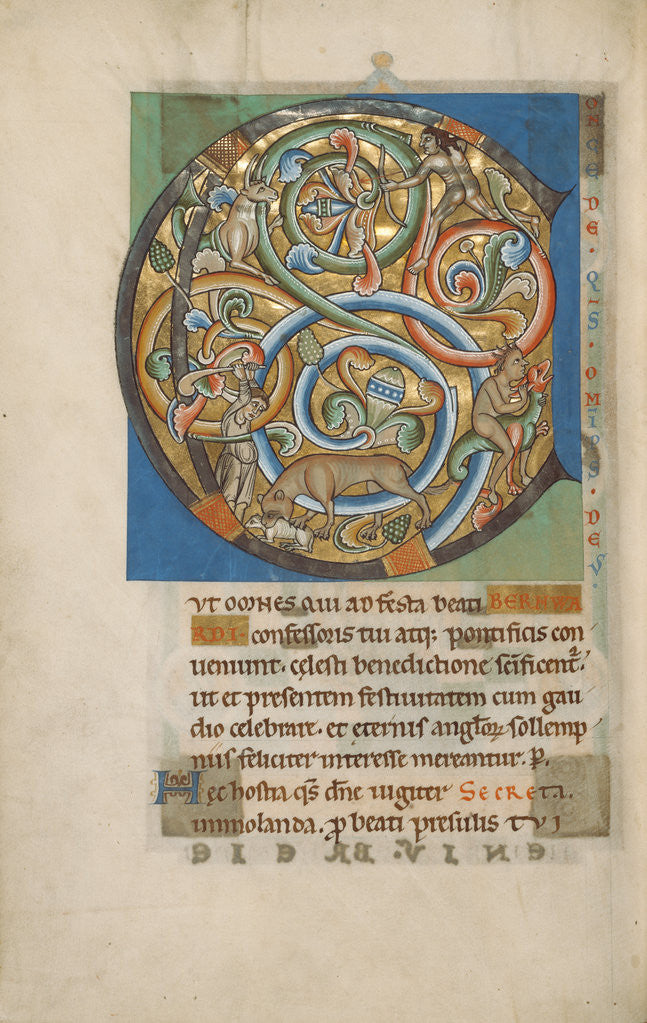 C
ONCEDE · Q̄S · OMĪPS · DEVS ·
VT OMNES QUI AD festa beati BERNWA
RDI · confessoris tui atq; pontificis con
ueniunt · cęlesti benedictione sc̄ificent᷑ ·
ut et presentem festiuitatem cum gau
dio celebrare · et eternis angl̄oꝝ sollemp
niis feliciter interesse mereantur · P.
Hęc hostia q̄s dn̄e iugiter SeCReta.
immolanda · ꝓ beati presulis TVI